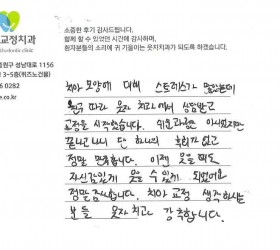 소중한 후기 감사드립니다.
함께 할 수 있었던 시간에 감사하며,
환자분들의 소리에 귀 기울이는 웃자치과가 되도록 하겠습니다.
교정치과
thodontic clinic
원구 성남대로 1156
3~5층(위즈노건물)
6 0282
e.co.kr
치아 모양에 대해 스트레스가 많았는데
친구 따라 웃자 치과에서 상담받고
교정을 시작했습니다. 쉬운과정은 아니었지만
끝나고 나니 단 하나의 후회가 없고
정말 만족합니다. 이젠 웃을 때도
자신감있게 웃을 수 있게 되었어요
정말 감사합니다. 치아 교정 생각하시는
분들 웃자치과 강추합니다.